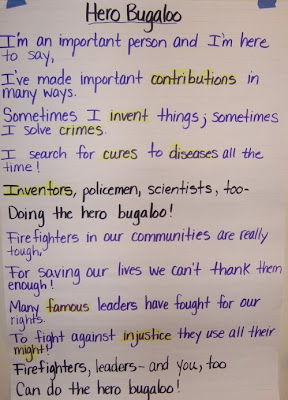 Hero Bugaloo
I'm an important person and I'm here
to say,
I've made important contributions in
many ways.
Sometimes I invent things; sometimes
I solve crimes.
I search for cures to diseases all the
time!
Inventors, policemen, scientists, too-
Doing the hero bugaloo!
Firefighters in our communities are really
tough,
For saving our lives we can't thank them
enough!
Many famous leaders have fought for our
rights.
To fight against injustice they use all their
might!
Firefighters, leaders- and you, too
Can do the hero bugaloo!